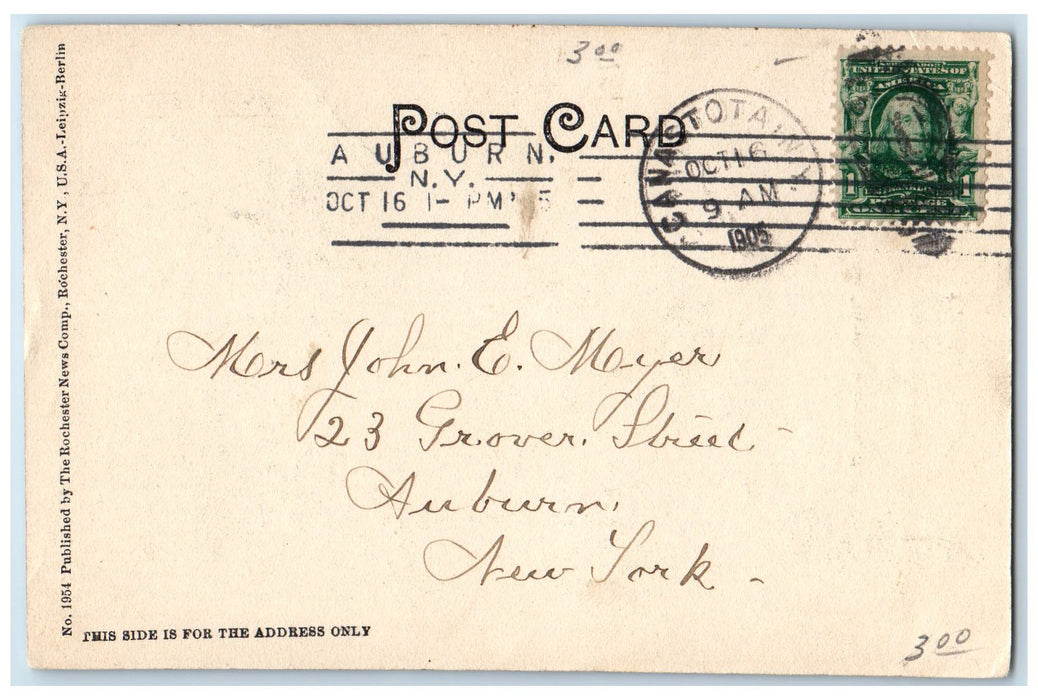 3 00
POST CARD
AUBURN.
N.Y.
OCT 16 1- PM' 5
CANASTOTA. N.Y.
OCT 16
9 AM
1905
UNITED STATES OF
AMERICA
1 1
POSTAGE
Mrs John. E. Meyer
23 Grover. Street -
Auburn.
New York -
No. 1954 Published by The Rochester News Comp., Rochester, N.Y, U.S.A.-Leipzig-Berlin
THIS SIDE IS FOR THE ADDRESS ONLY
3 00